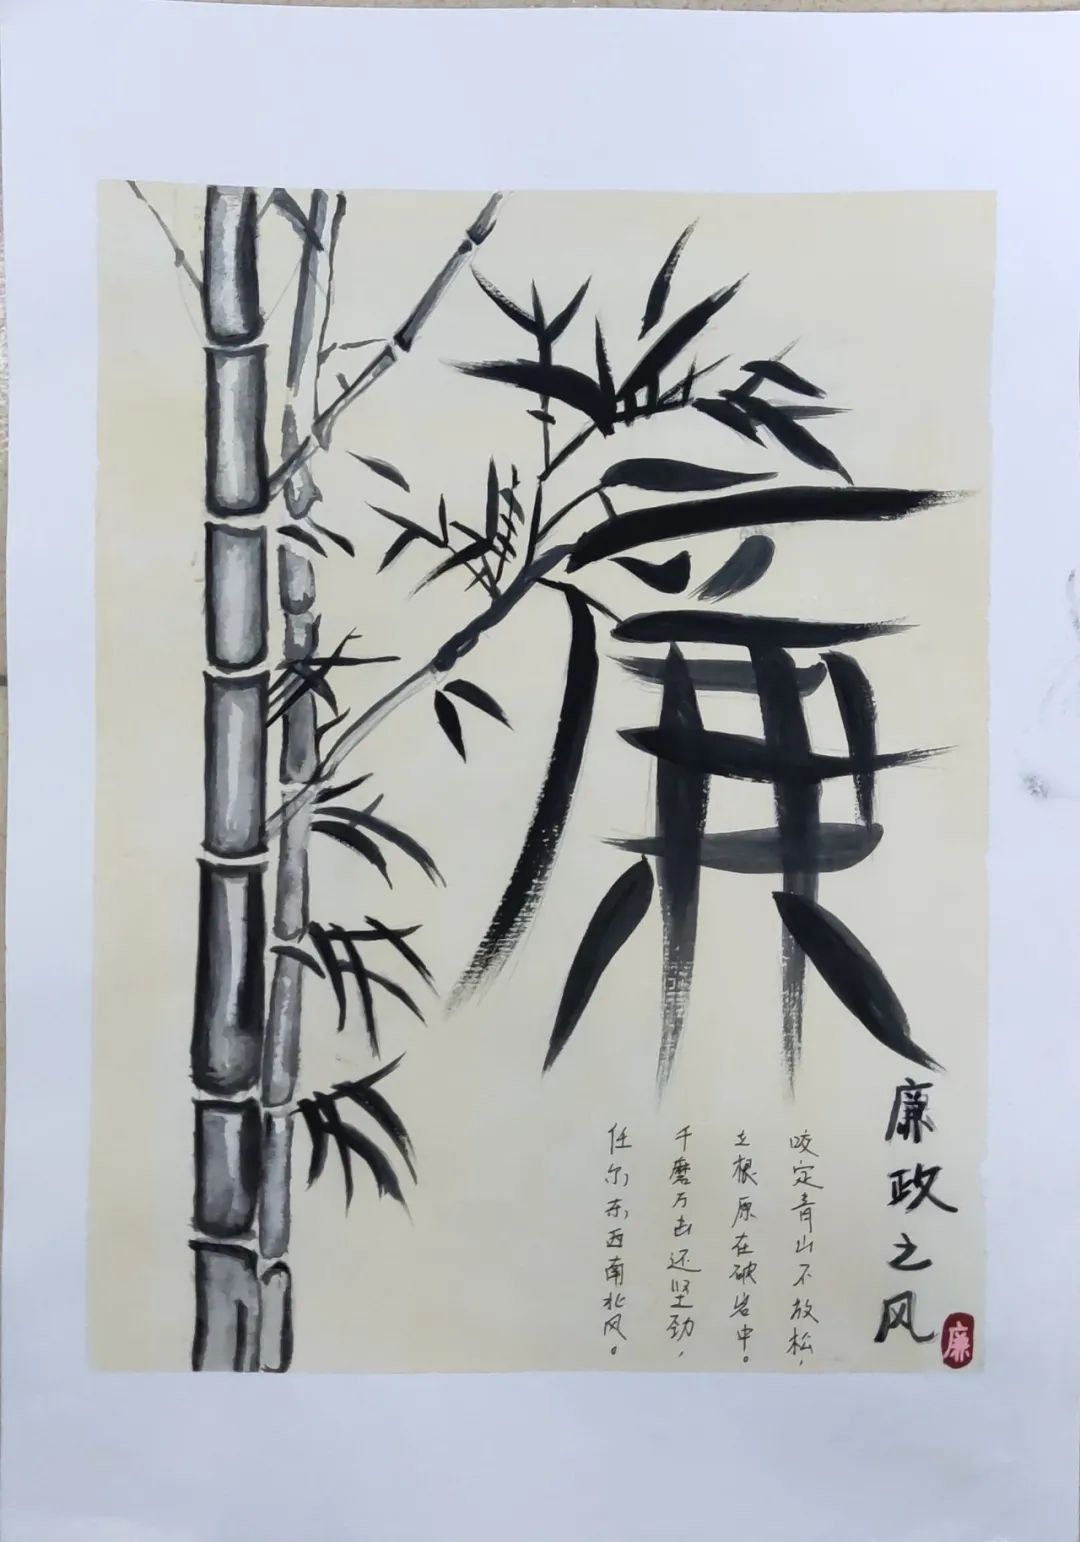 廉
廉政之风
廉
咬定青山不放松，
立根原在破岩中。
千磨万击还坚劲，
任尔东西南北风。